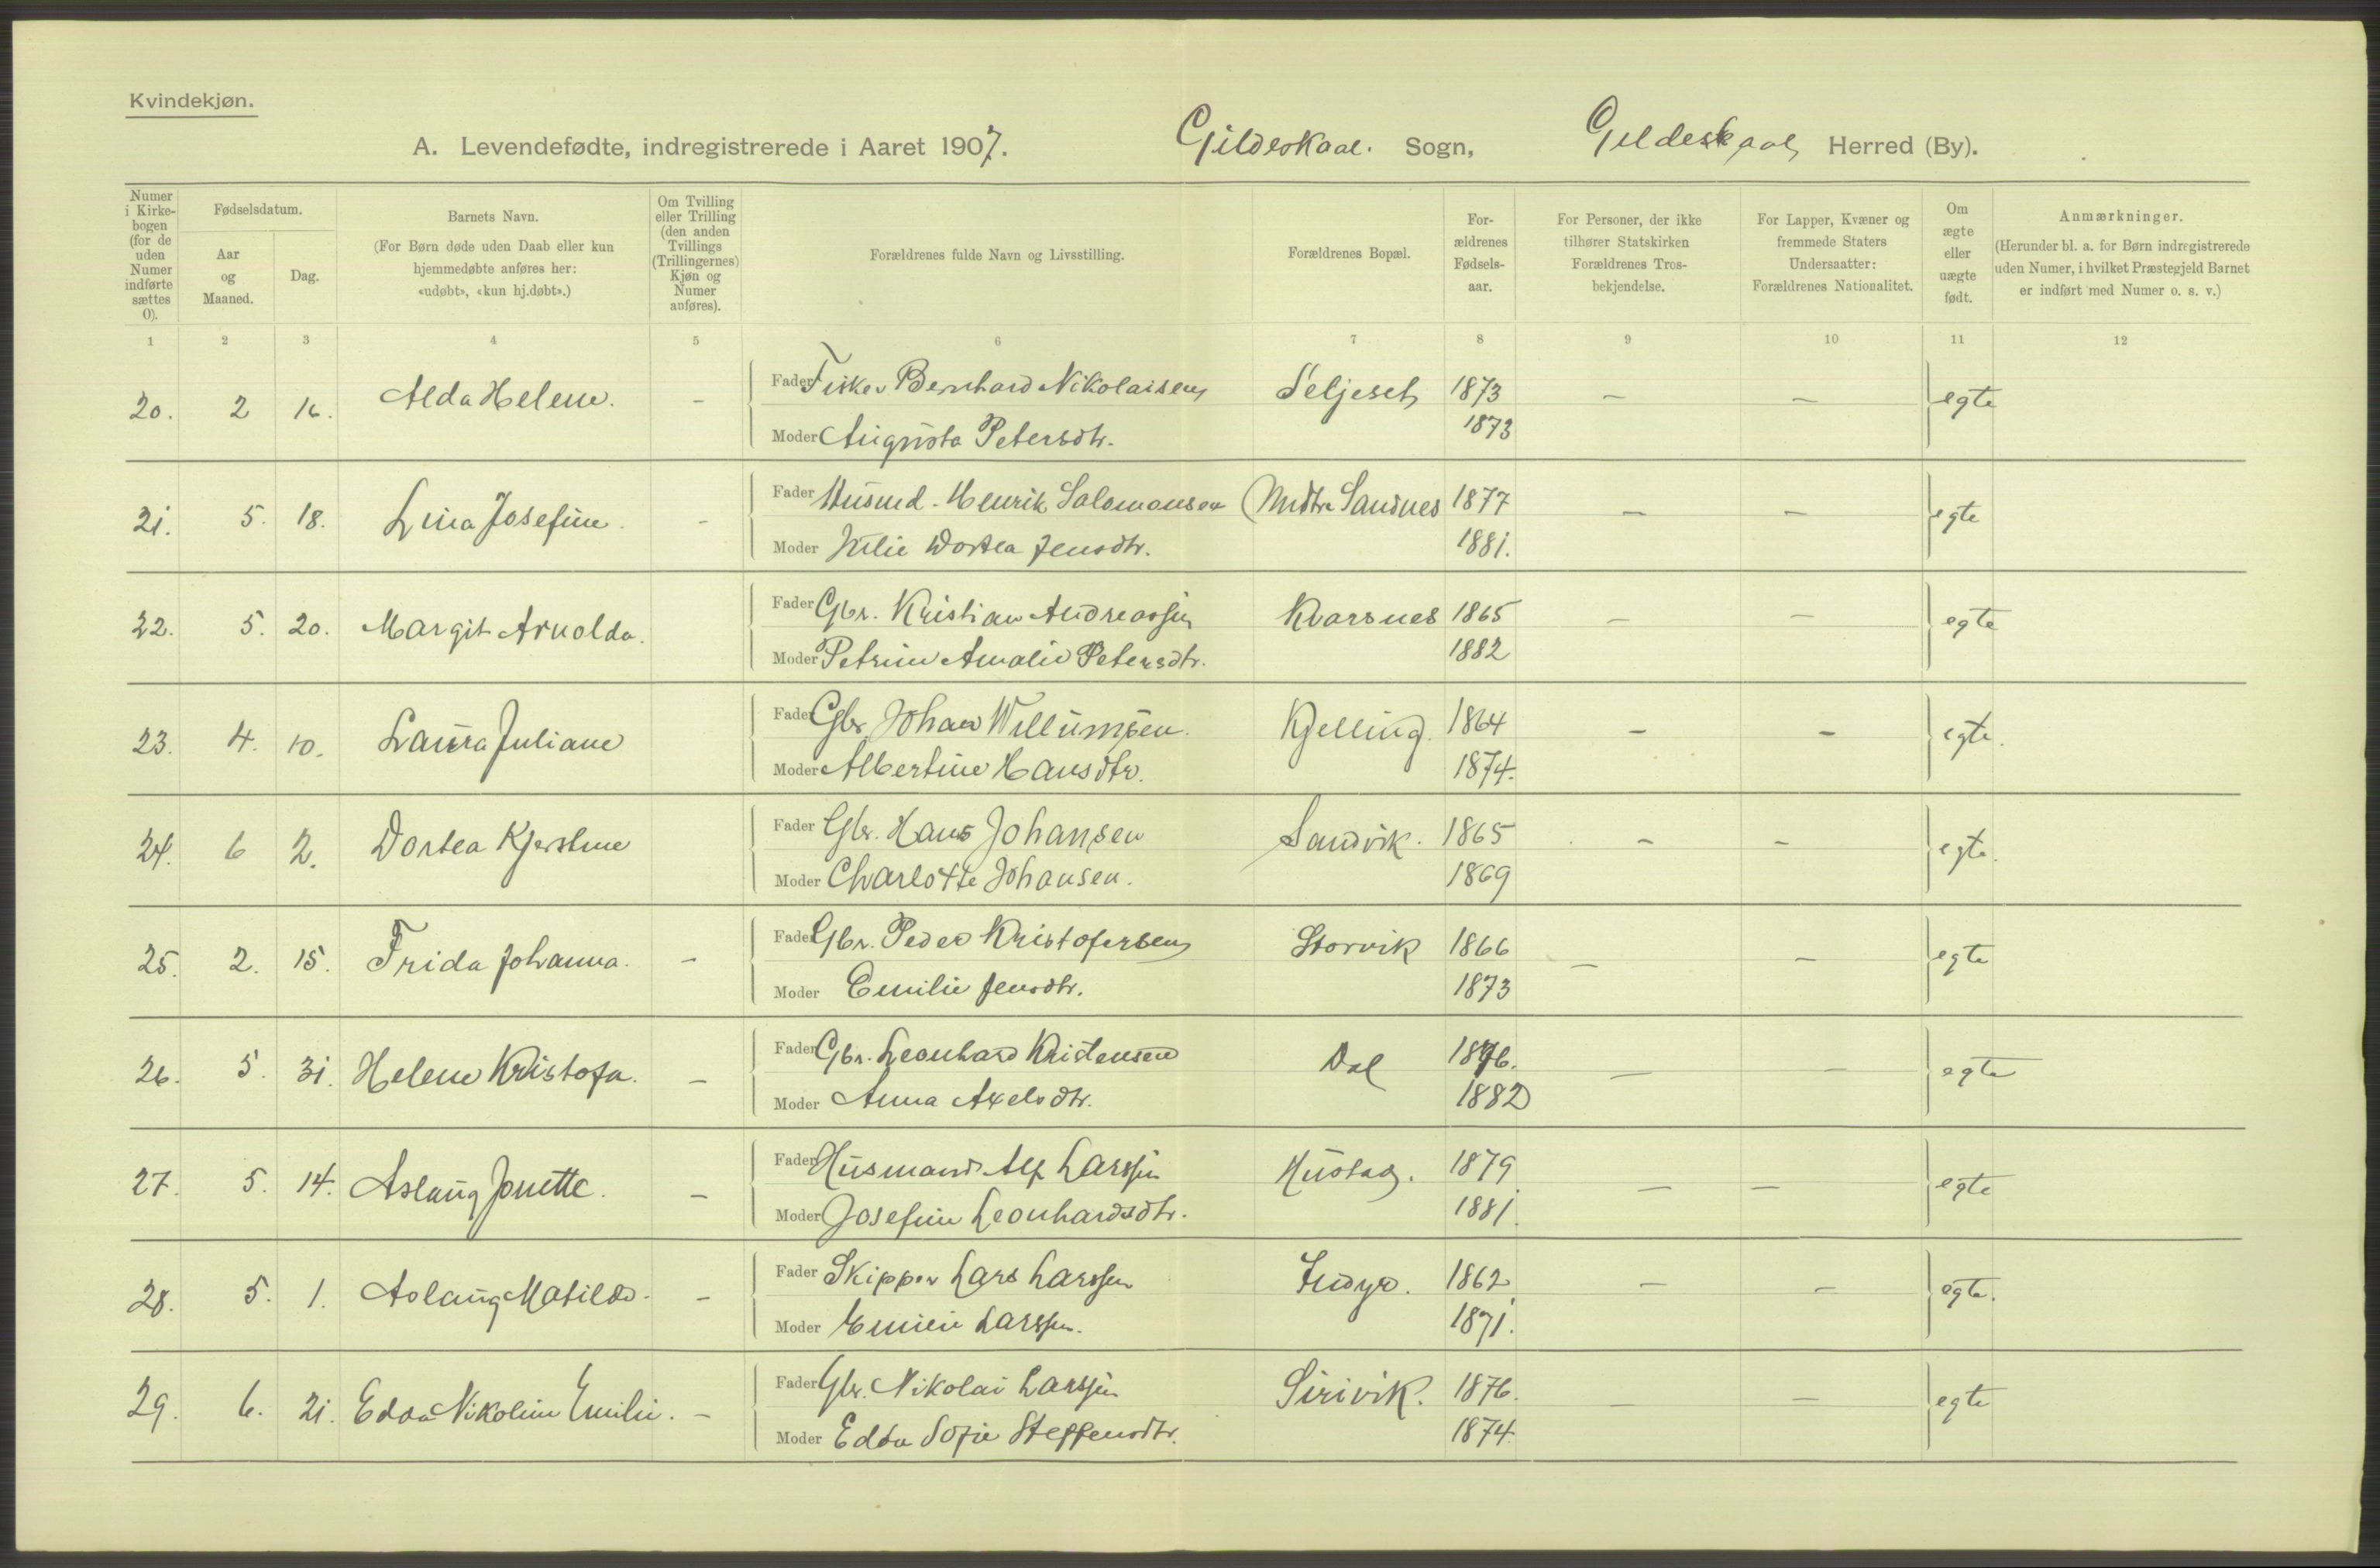 Kvindekjøn.
A. Levendefødte, indregistrerede i Aaret 1907. Gildeskaal. Sogn, Gildeskaal Herred (By).
Numer i Kirkebogen (for de uden Numer indførte sættes 0).
Fødselsdatum.
Aar og Maaned.
Dag.
Barnets Navn.
(For Børn døde uden Daab eller kun hjemmedøbte anføres her: «udøbt», «kun hj.døbt».)
Om Tvilling eller Trilling (den anden Tvillings (Trillingernes) Kjøn og Numer anføres).
Forældrenes fulde Navn og Livsstilling.
Forældrenes Bopæl.
Forældrenes Fødselsaar.
For Personer, der ikke tilhører Statskirken Forældrenes Trosbekjendelse.
For Lapper, Kvæner og fremmede Staters Undersaatter: Forældrenes Nationalitet.
Om ægte eller uægte født.
Anmærkninger.
(Herunder bl. a. for Børn indregistrerede uden Numer, i hvilket Præstegjeld Barnet er indført med Numer o. s. v.)
1 2 3 4 5 6 7 8 9 10 11 12
20. 2 16. Alda Helene. - Fader Fisker Bernhard Nikolaisen Seljeset 1873 - - egte
Moder Augusta Petersdtr. 1873
21. 5. 18. Lina Josefine. - Fader Husmd. Henrik Salomonsen Indtre Sandnes 1877 - - egte
Moder Julie Dortea Jensdtr. 1881.
22. 5. 20. Margit Arnolda. Fader Gbr. Kristian Andreassen Kvarsnes 1865 - - egte
Moder Petrine Amalie Petersdtr. 1882
23. 4. 10. Laura Juliane Fader Gbr. Johan Willumsen. Kjelling. 1864 - - egte.
Moder Albertine Hansdtr. 1874.
24. 6 2. Dortea Kjerstine Fader Gbr. Hans Johansen Sandvik. 1865 - - egte.
Moder Charlotte Johansen. 1869
25. 2. 15. Frida Johanna. - Fader Gbr. Peder Kristofersen Storvik 1866 - - egte
Moder Emilie Jensdtr. 1873
26. 5. 31. Helene Kristofa. - Fader Gbr. Leonhard Kristensen Dal 1876. - - egte
Moder Anna Axelsdtr. 1882
27. 5. 14. Aslaug Jonette. - Fader Husmand Alf Larssen 1879 - - egte
Moder Josefine Leonhardsdtr. 1881.
28. 5. 1. Aslaug Matilde. - Fader Skipper Lars Larssen Indyr. 1862 - - egte.
Moder Emilie Larssen. 1871.
29. 6. 21. Edda Nikoline Emilie. - Fader Gbr. Nikolai Larssen Sirivik. 1876. - - egte
Moder Edda Sofie Steffensdtr. 1874